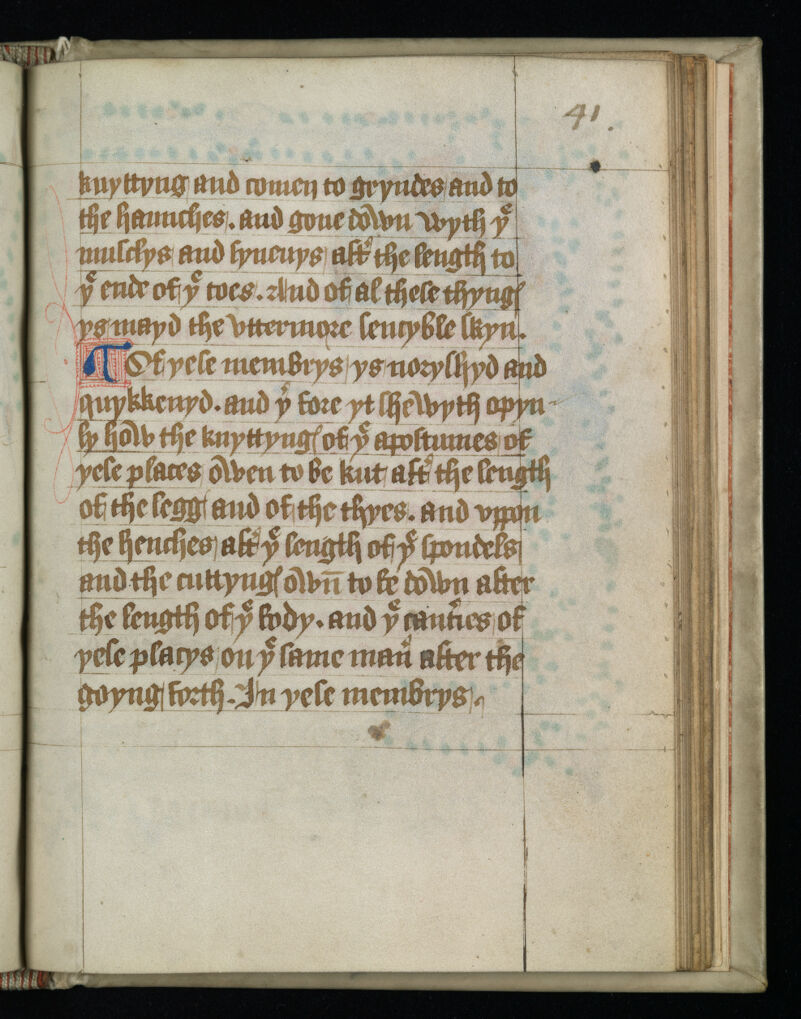 41.
knyttyng and comen to gryndes and to
the haunches. and gone down wyth yͤ
musclys and synenys aftͬ the length to
yͤ ende of yͤ toes. And of al these thyngꝭ
ys mayd the vttermore sencyble skyn.
¶ Of yese membrys ys noryshyd and
quykkenyd. and yͬ fore yt shewyth opyn-
ly how the knyttyngꝭ of yͤ apostumes of
yese places owen to be kut aftͬ the length
of the leggꝭ and of the thyes. and vppon
the henches aftͬ yͤ length of yͤ spondels
and the cuttyngꝭ own̄ to be down after
the length of yͤ body. and yͤ cautͬies of
yese placys on yͤ same manͬ after the
goyng forth. In yese membrys.